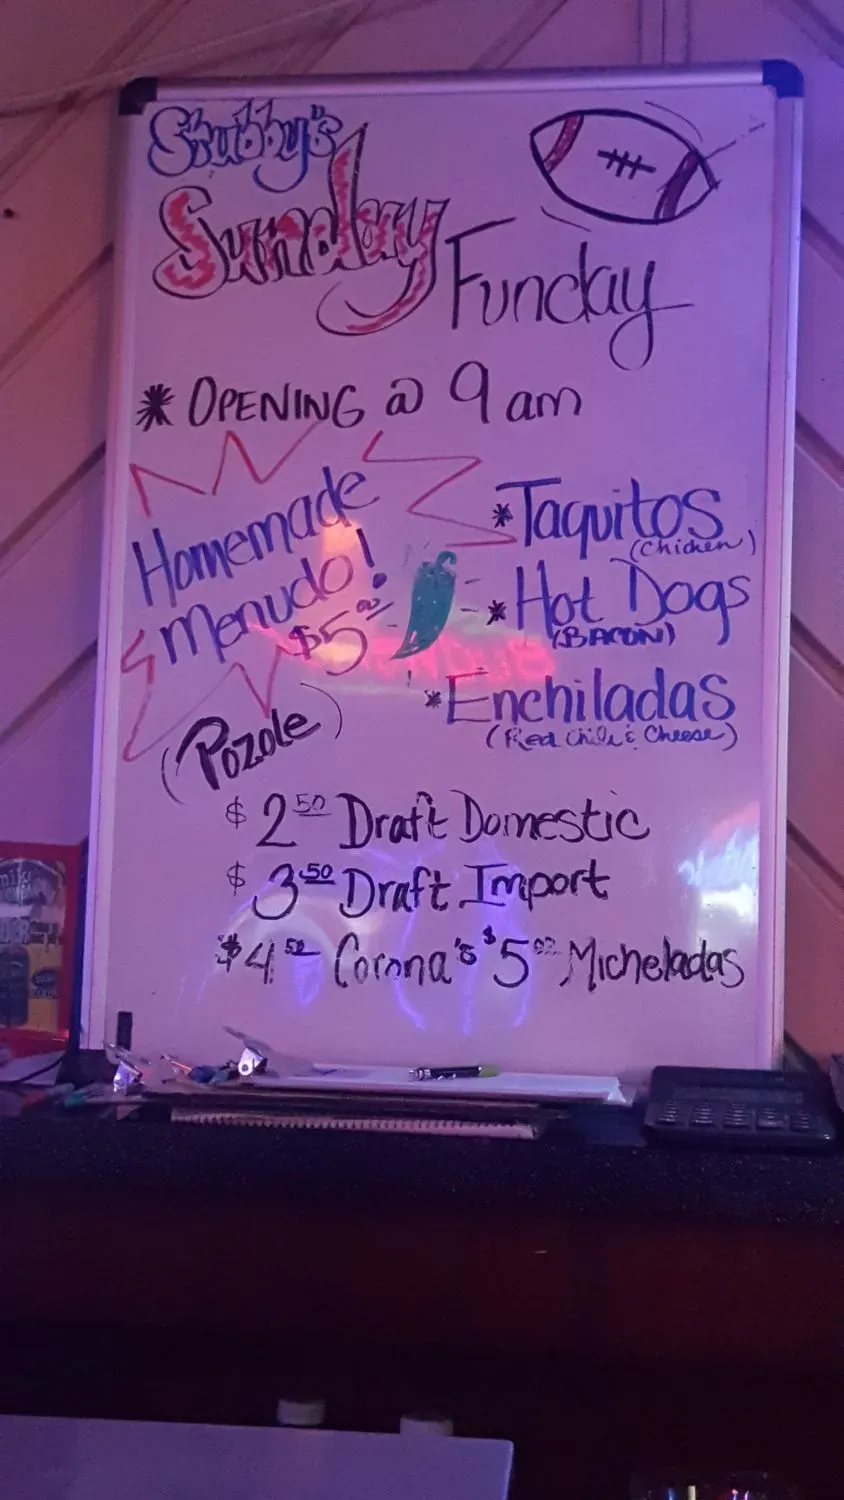 Stubby's
Sunday
Funday
* OPENING @ 9am
Homemade
Menudo!
$5.00
(Pozole)
* Taquitos
(Chicken)
* Hot Dogs
(BACON)
* Enchiladas
(Red Chile & Cheese)
$2.50 Draft Domestic
$3.50 Draft Import
$4.50 Corona's $5.00 Micheladas